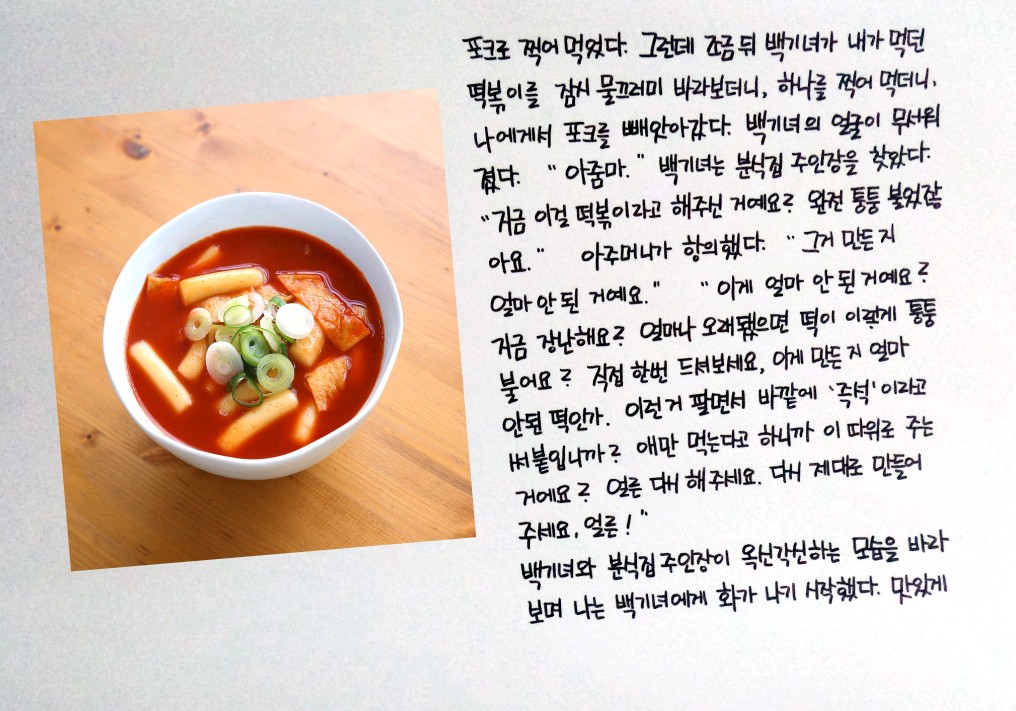 포크로 찍어 먹었다. 그런데 조금 뒤 백기녀가 내가 먹던
떡볶이를 잠시 물끄러미 바라보더니, 하나를 찍어 먹더니,
나에게서 포크를 빼앗아갔다. 백기녀의 얼굴이 무서워
졌다. "아줌마." 백기녀는 분식집 주인장을 찾았다.
"지금 이걸 떡볶이라고 해주신 거예요? 완전 퉁퉁 불었잖
아요." 아주머니가 항의했다. "그거 만든지
얼마 안 된 거예요." "이게 얼마 안 된 거예요?
지금 장난해요? 얼마나 오래됐으면 떡이 이렇게 퉁퉁
불어요? 직접 한번 드셔보세요, 이게 만든지 얼마
안된 떡인가. 이런거 팔면서 바깥에 '즉석'이라고
써붙입니까? 애만 먹는다고 하니까 이 따위로 주는
거에요? 얼른 다시 해주세요. 다시 제대로 만들어
주세요, 얼른!"
백기녀와 분식집 주인장이 옥신각신하는 모습을 바라
보며 나는 백기녀에게 화가 나기 시작했다. 맛있게